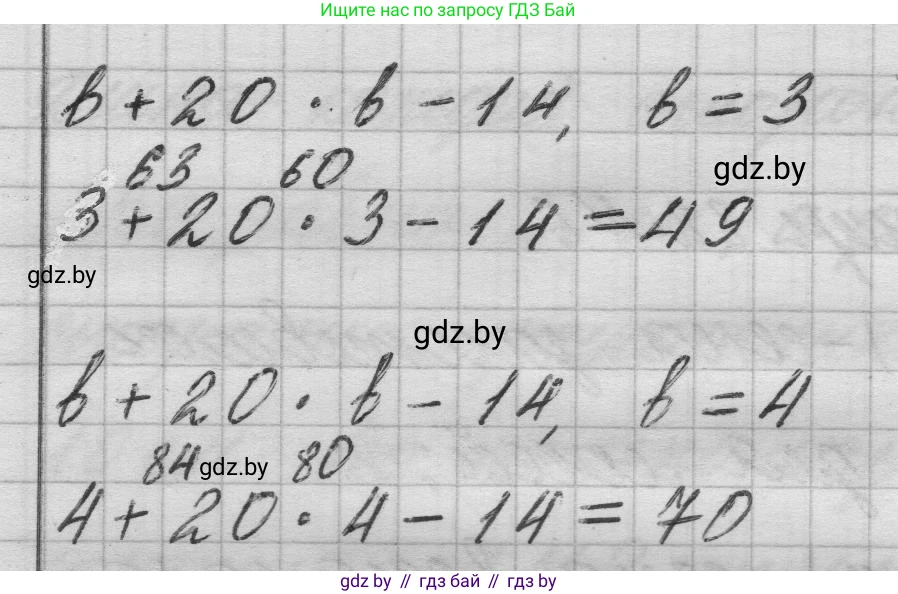 Ищите нас по запросу ГДЗ Бай
в + 20 · в - 14, в = 3
63 60
gdz.by
3 + 20 · 3 - 14 = 49
gdz.by
gdz.by
в + 20 · в - 14, в = 4
84 gdz.by 80
4 + 20 · 4 - 14 = 70
gdz by // гдз бай // гдз by